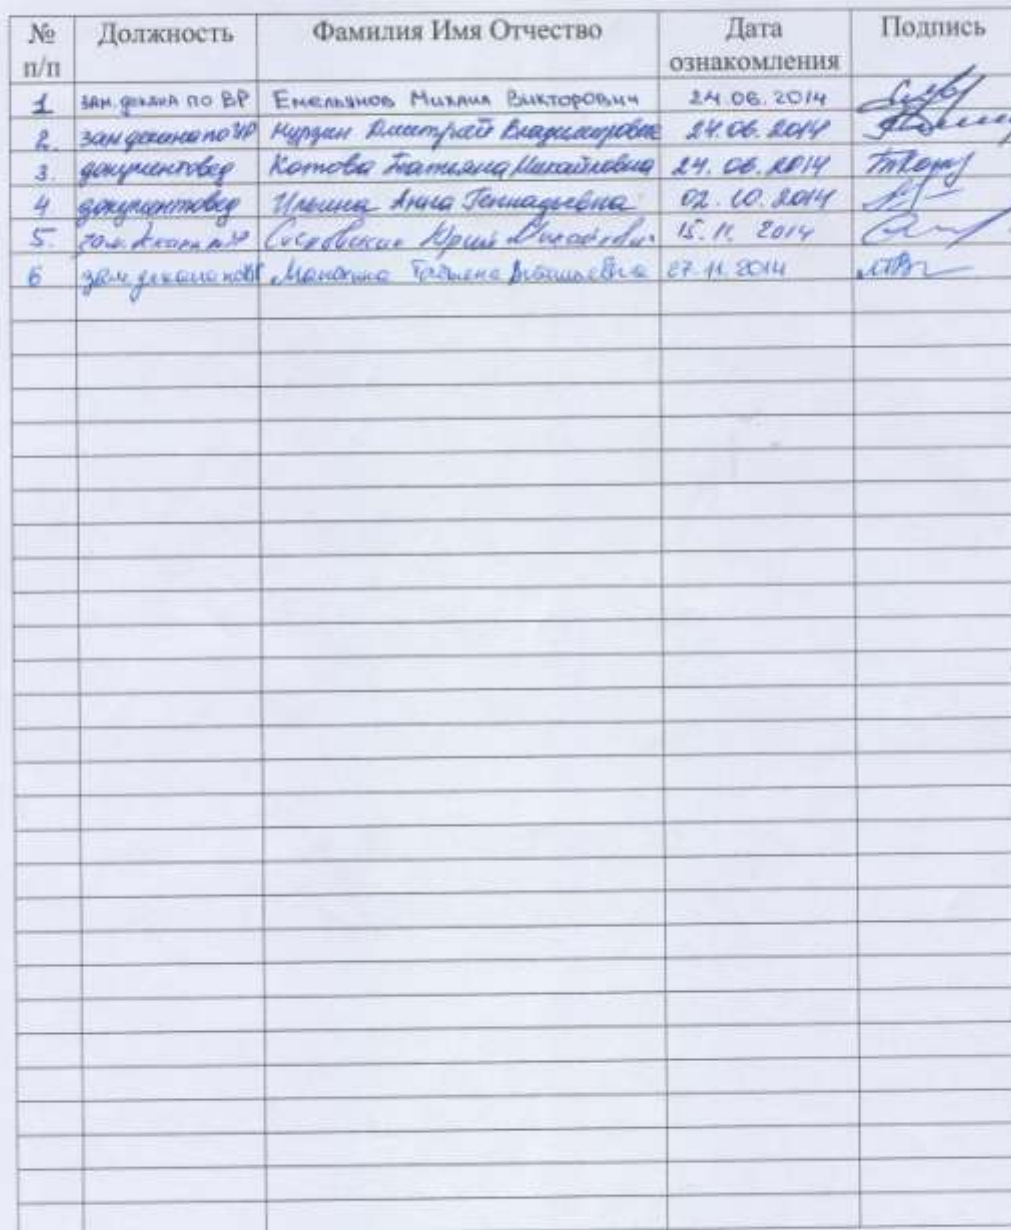 № п/п Должность Фамилия Имя Отчество Дата ознакомления Подпись
1 зам. декана по ВР Емельянов Михаил Викторович 24.06.2014
2. зам декана по УР Дмитрий Владимирович 24.06.2014
3. документовед Котова Татьяна Михайловна 24.06.2014
4 документовед Ильина Анна Геннадьевна 02.10.2014
5. зам. декана Юрий 15.11.2014
6 зам. декана по Татьяна 27.11.2014